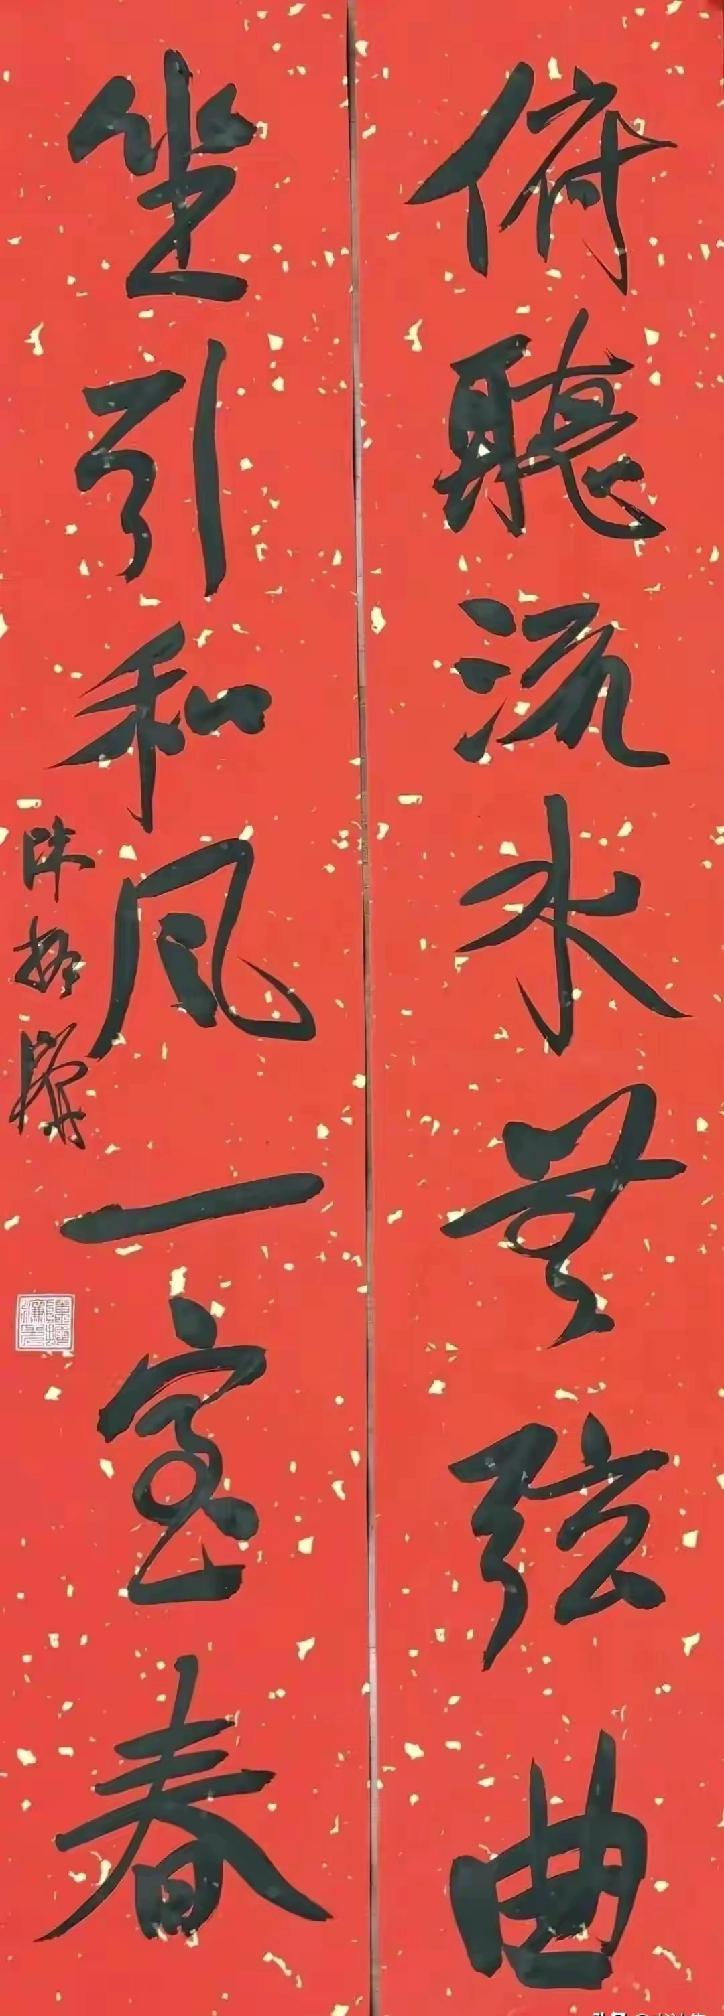 俯聽流水無弦曲
坐引和风一室春
陈振濂